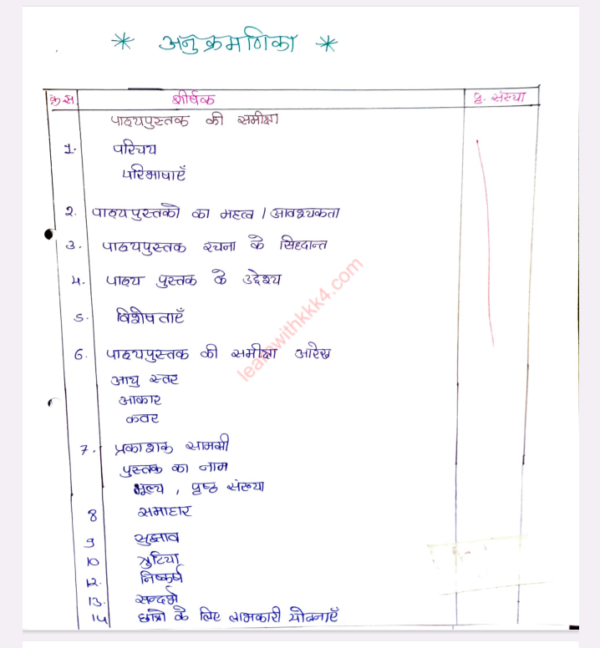 * अनुक्रमणिका *
क्र स शीर्षक पृ. संख्या
पाठ्यपुस्तक की समीक्षा
1. परिचय
परिभाषाएँ
2. पाठ्यपुस्तकों का महत्व / आवश्यकता
3. पाठ्यपुस्तक रचना के सिद्धान्त
4. पाठ्य पुस्तक के उद्देश्य
5. विशेषताएँ
6. पाठ्यपुस्तक की समीक्षा आरेख
आयु स्तर
आकार
कवर
7. प्रकाशक सामग्री
पुस्तक का नाम
मूल्य , पृष्ठ संख्या
8 समाहार
9 सुझाव
10 त्रुटिया
12. निष्कर्ष
13. सन्दर्भ
14 छात्रो के लिए लाभकारी योजनाएँ
learnwithkkk4.com